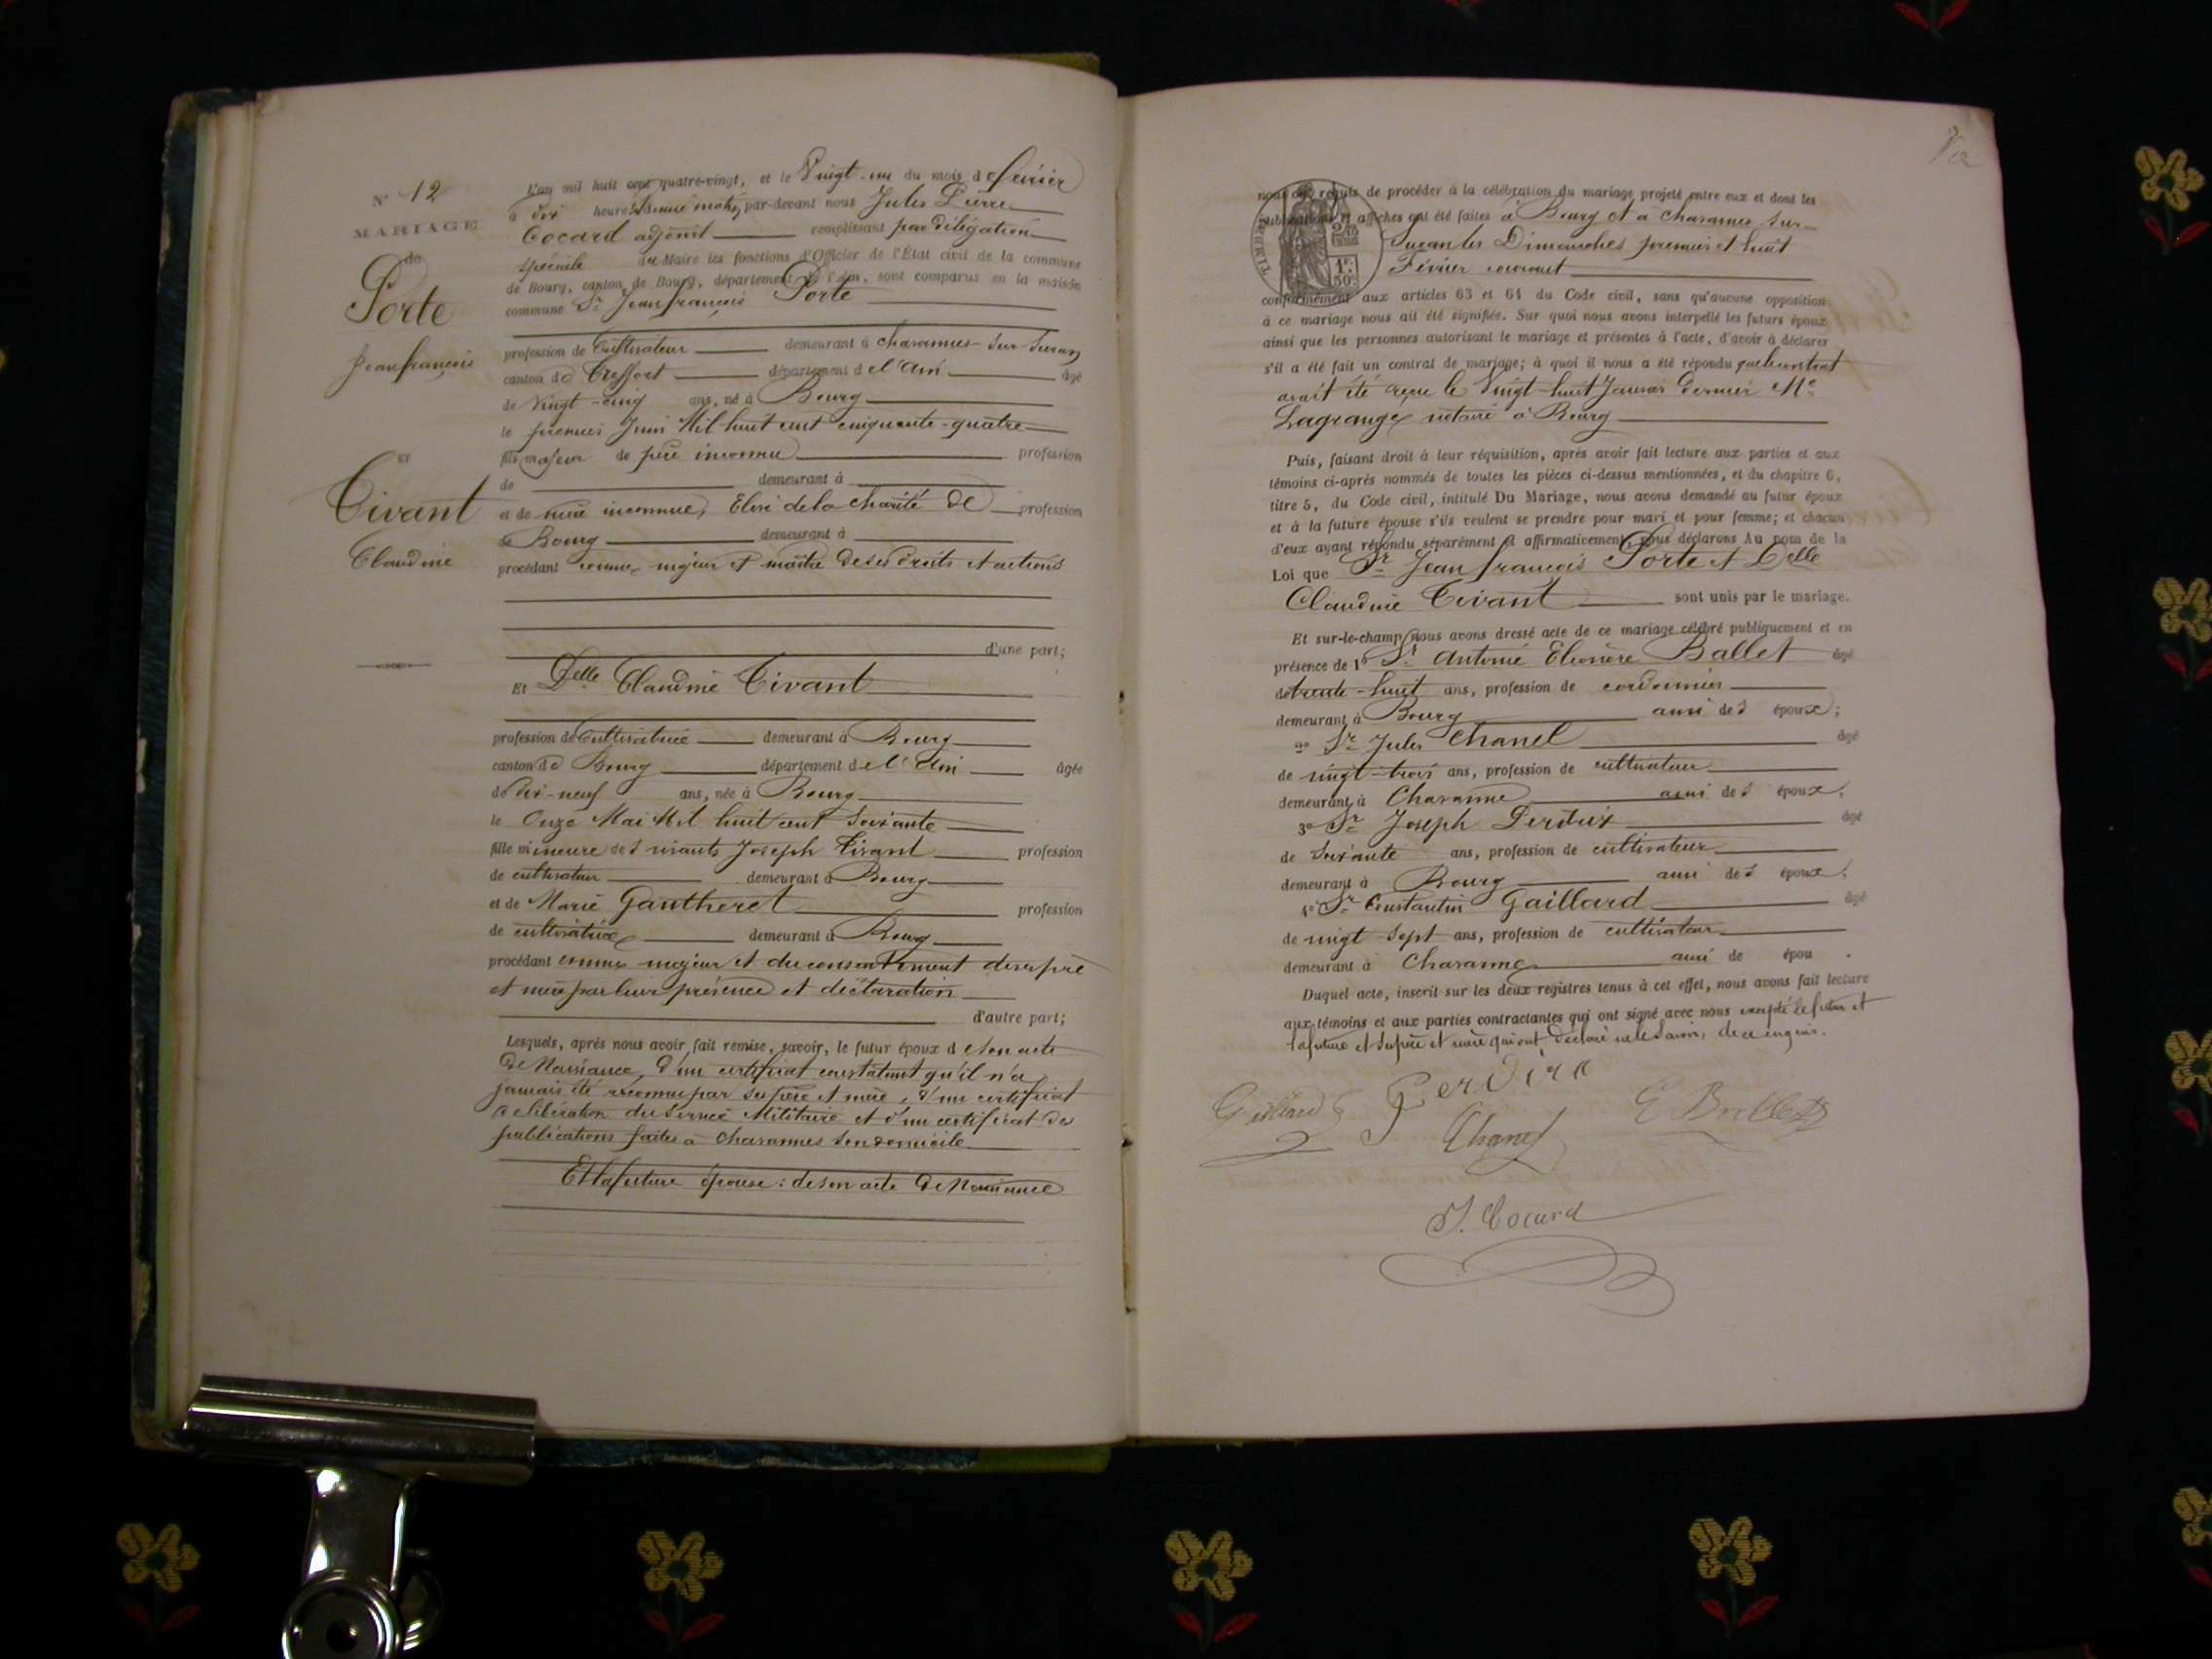 N° 12
MARIAGE
de
Porte
Jean françois
ET
Tivant
Claudine
L'an mil huit cent quatre-vingt, et le Vingt-un du mois de février
à dix heures du matin, par-devant nous Jules Pierre
Cocard adjoint remplissant par délégation
spéciale du Maire les fonctions d'Officier de l'État civil de la commune
de Bourg, canton de Bourg, département de l'Ain, sont comparus en la maison
commune Sr Jean françois Porte
profession de Cultivateur demeurant à Chavannes-sur-Suran
canton de Treffort département de l'Ain âgé
de vingt-cinq ans, né à Bourg
le premier Juin Mil huit cent cinquante-quatre
fils majeur de père inconnu profession
de demeurant à
et de mère inconnue, Elève de la charité de profession
de Bourg demeurant à
procédant comme majeur et maître de ses droits et actions
d'une part;
Et Delle Claudine Tivant
profession de Cultivatrice demeurant à Bourg
canton de Bourg département de l'Ain âgée
de dix-neuf ans, née à Bourg
le Onze Mai Mil huit cent soixante
fille mineure des vivants Joseph Tivant profession
de cultivateur demeurant à Bourg
et de Marie Gautheret profession
de cultivatrice demeurant à Bourg
procédant comme majeur et du consentement de ses père
et mère par leur présence et déclaration
d'autre part;
Lesquels, après nous avoir fait remise, savoir, le futur époux de son acte
de Naissance, d'un certificat constatant qu'il n'a
jamais été reconnu par ses père et mère, d'un certificat
de libération du service Militaire et d'un certificat de
publications faites à Chavannes son domicile
Et la future épouse: de son acte de Naissance
nous ont requis de procéder à la célébration du mariage projeté entre eux et dont les
publications et affiches ont été faites à Bourg et à Chavannes-sur-
Suran les Dimanches premier et huit
Février courant
TIMBRE
1F
50c
conformément aux articles 63 et 64 du Code civil, sans qu'aucune opposition
à ce mariage nous ait été signifiée. Sur quoi nous avons interpellé les futurs époux
ainsi que les personnes autorisant le mariage et présentes à l'acte, d'avoir à déclarer
s'il a été fait un contrat de mariage; à quoi il nous a été répondu que le contrat
avait été reçu le Vingt-huit Janvier dernier Me
Lagrange notaire à Bourg
Puis, faisant droit à leur réquisition, après avoir fait lecture aux parties et aux
témoins ci-après nommés de toutes les pièces ci-dessus mentionnées, et du chapitre 6,
titre 5, du Code civil, intitulé Du Mariage, nous avons demandé au futur époux
et à la future épouse s'ils veulent se prendre pour mari et pour femme; et chacun
d'eux ayant répondu séparément et affirmativement, nous déclarons Au nom de la
Loi que Sr Jean françois Porte et Delle
Claudine Tivant sont unis par le mariage.
Et sur-le-champ nous avons dressé acte de ce mariage célébré publiquement et en
présence de 1° Sr Antoine Eléonore Ballet âgé
de trente-huit ans, profession de cordonnier
demeurant à Bourg ami des époux;
2° Sr Jules Chanel âgé
de vingt-trois ans, profession de cultivateur
demeurant à Chavanne ami des époux;
3° Sr Joseph Perdrix âgé
de soixante ans, profession de cultivateur
demeurant à Bourg ami des époux;
4° Sr Constantin Gaillard âgé
de vingt-sept ans, profession de cultivateur
demeurant à Chavanne ami de épou .
Duquel acte, inscrit sur les deux registres tenus à cet effet, nous avons fait lecture
aux témoins et aux parties contractantes qui ont signé avec nous excepté le futur et
la future et ses père et mère qui ont déclaré ne le savoir, de ce enquis.
Gaillard
Perdrix
Chanel
E Ballet
J. Cocard